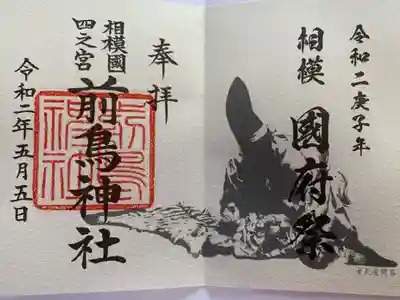 令和二庚子年
相模 國府祭
奉拝
相模國
四之宮
前鳥神社
令和二年五月五日